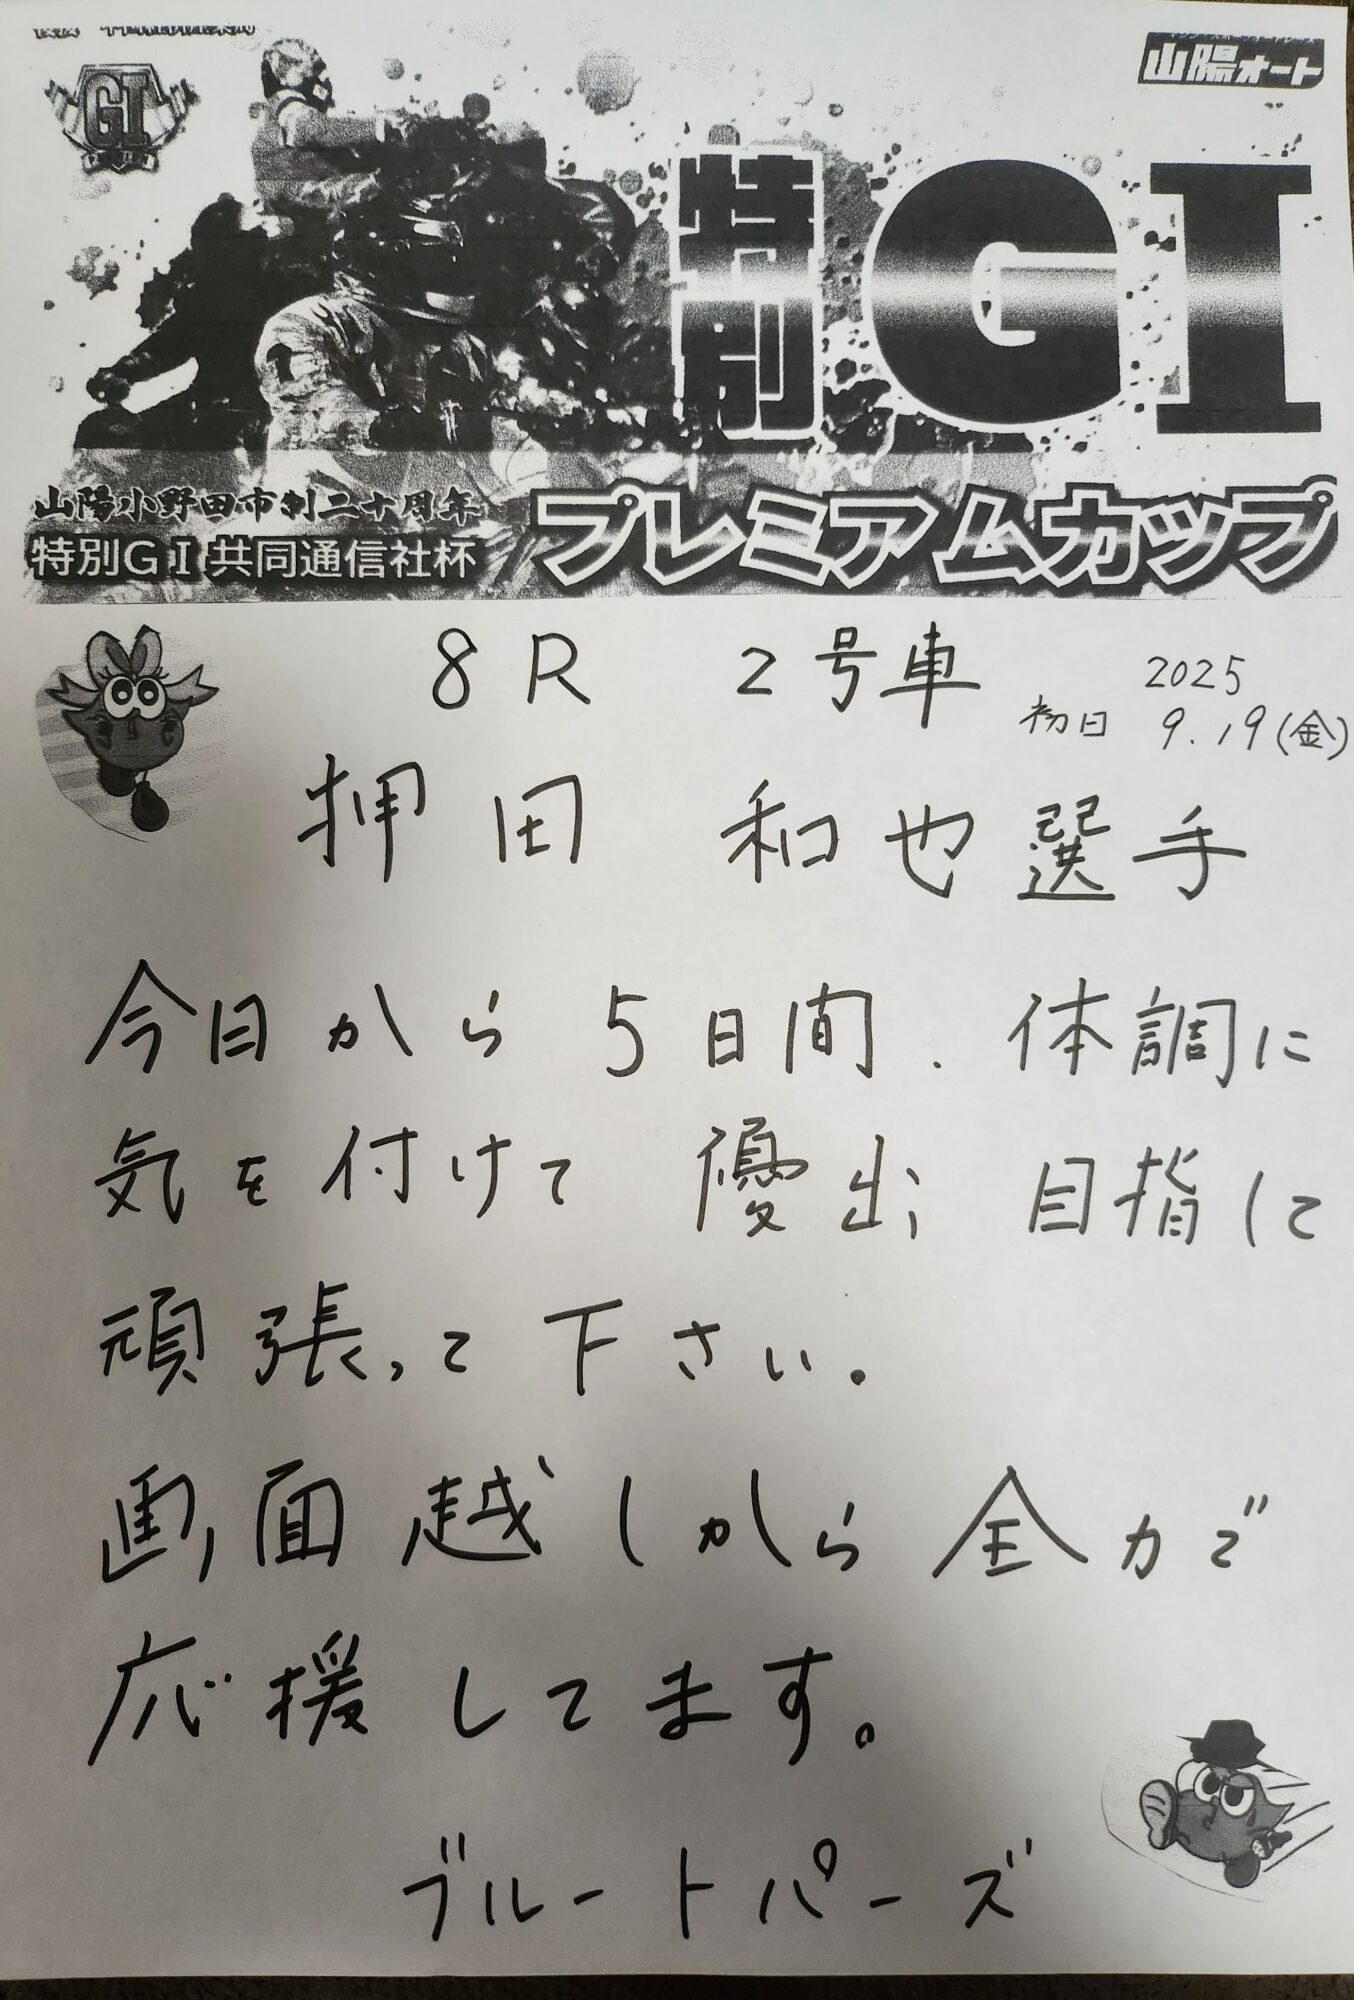 山陽オート
GI
特別GI
山陽小野田市制二十周年
特別GI共同通信社杯
プレミアムカップ
8R 2号車
初日 2025 9.19(金)
押田 和也選手
今日から5日間、体調に
気を付けて優出目指して
頑張って下さい。
画面越しから全力で
応援してます。
ブルートパーズ